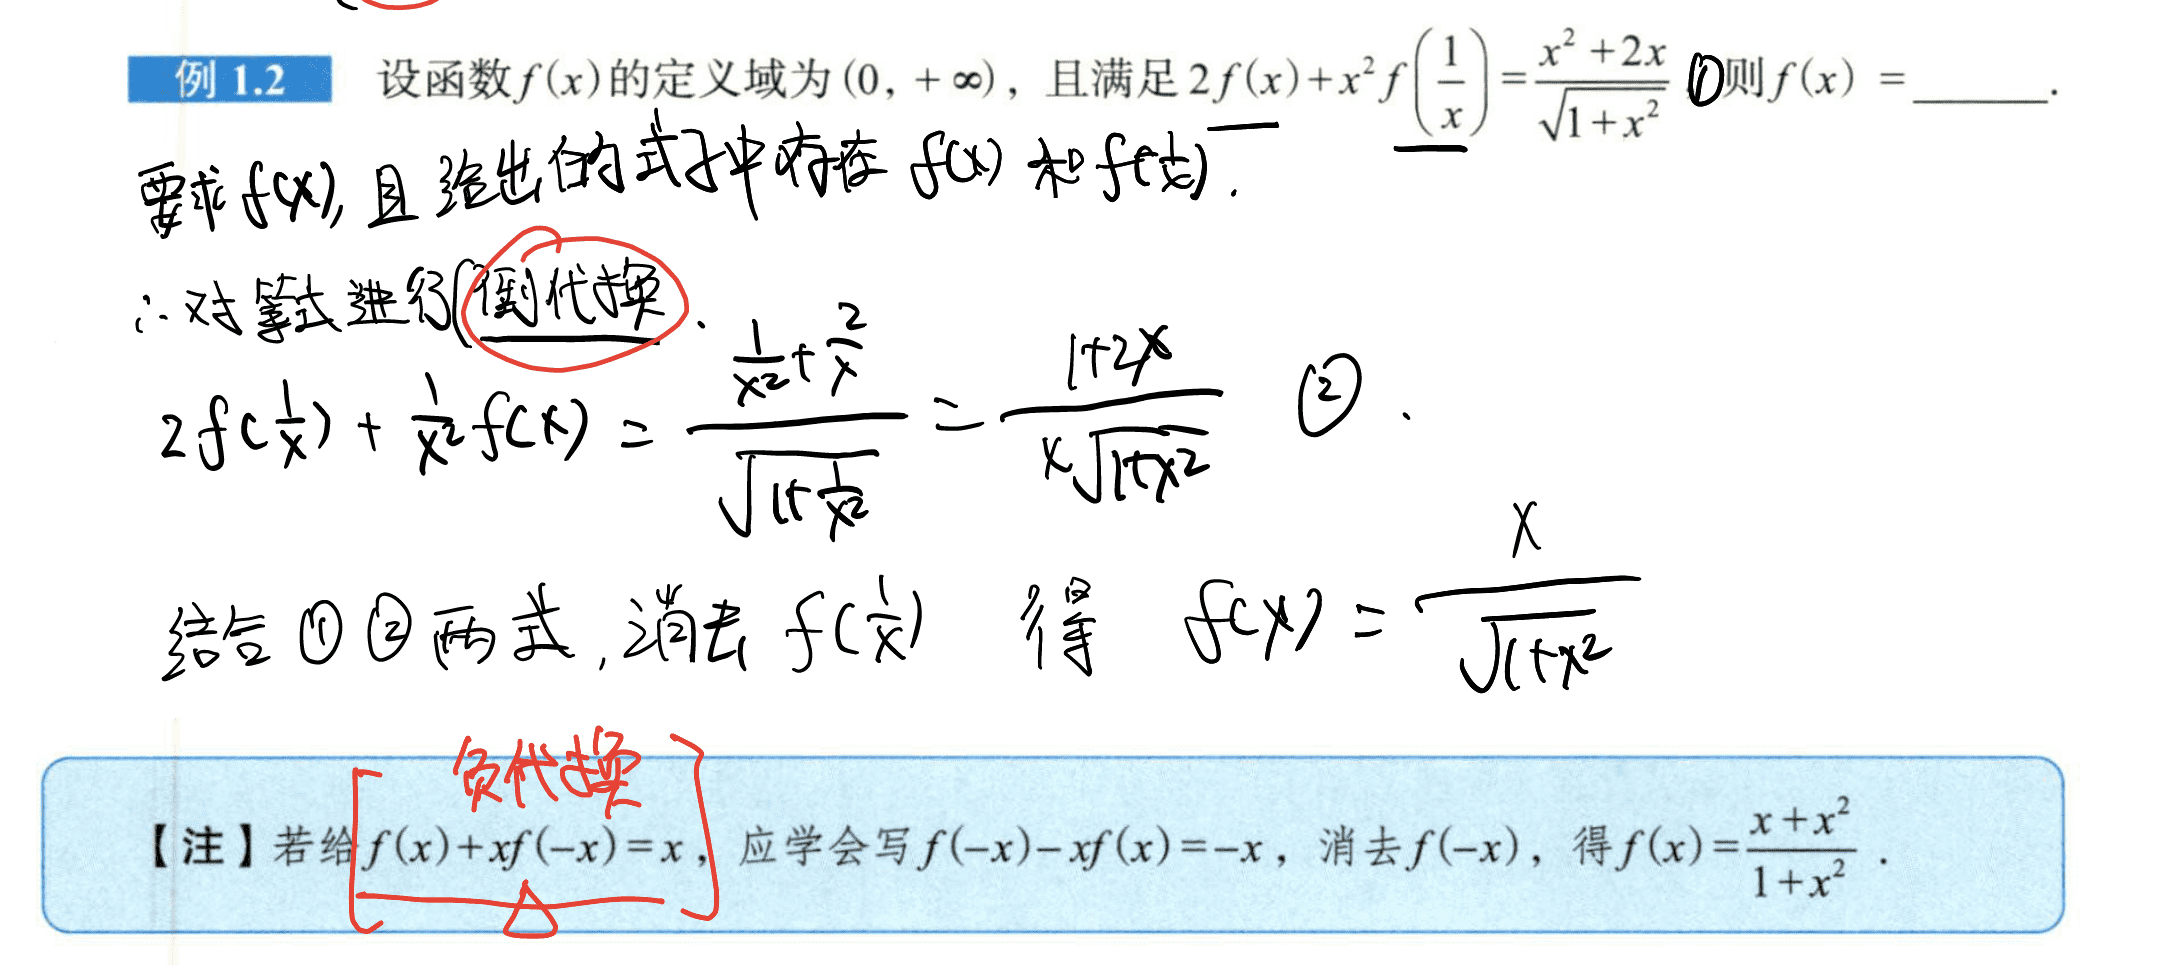 例 1.2 设函数f(x)的定义域为(0, +∞), 且满足2f(x)+x²f(1/x)=(x²+2x)/√(1+x²) ① 则f(x) = ______.
要求f(x), 且给出的式子中存在 f(x) 和 f(1/x).
∴对等式进行(倒代换.
2f(1/x) + 1/x² f(x) = (1/x²+2/x)/√(1+1/x²) = (1+2x)/(x√(1+x²)) ② .
结合 ① ② 两式, 消去 f(1/x) 得 f(x) = x/√(1+x²)
负代换
【注】若给f(x)+xf(-x)=x, 应学会写f(-x)-xf(x)=-x, 消去f(-x), 得f(x)=(x+x²)/(1+x²).